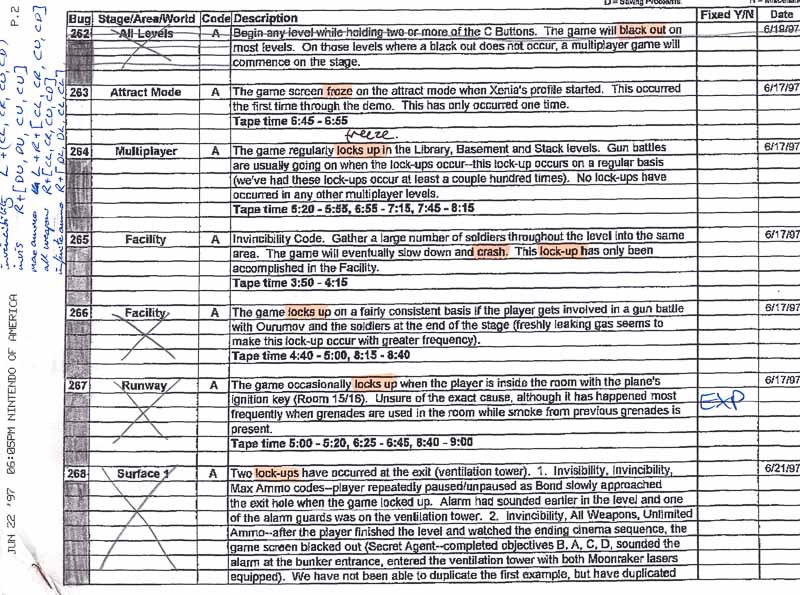 P.2
D = Saving Problems
Bug Stage/Area/World Code Description Fixed Y/N Date
262 All Levels A Begin any level while holding two or more of the C Buttons. The game will black out on 6/19/97
most levels. On those levels where a black out does not occur, a multiplayer game will
commence on the stage.
263 Attract Mode A The game screen froze on the attract mode when Xenia's profile started. This occurred 6/17/97
the first time through the demo. This has only occurred one time.
Tape time 6:45 - 6:55
freeze.
264 Multiplayer A The game regularly locks up in the Library, Basement and Stack levels. Gun battles 6/17/97
are usually going on when the lock-ups occur--this lock-up occurs on a regular basis
(we've had these lock-ups occur at least a couple hundred times). No lock-ups have
occurred in any other multiplayer levels.
Tape time 5:20 - 5:55, 6:55 - 7:15, 7:45 - 8:15
265 Facility A Invincibility Code. Gather a large number of soldiers throughout the level into the same 6/17/97
area. The game will eventually slow down and crash. This lock-up has only been
accomplished in the Facility.
Tape time 3:50 - 4:15
266 Facility A The game locks up on a fairly consistent basis if the player gets involved in a gun battle 6/17/97
with Ourumov and the soldiers at the end of the stage (freshly leaking gas seems to
make this lock-up occur with greater frequency).
Tape time 4:40 - 5:00, 8:15 - 8:40
267 Runway A The game occasionally locks up when the player is inside the room with the plane's 6/17/97
ignition key (Room 15/16). Unsure of the exact cause, although it has happened most EXP
frequently when grenades are used in the room while smoke from previous grenades is
present.
Tape time 5:00 - 5:20, 6:25 - 6:45, 8:40 - 9:00
268 Surface 1 A Two lock-ups have occurred at the exit (ventilation tower). 1. Invisibility, Invincibility, 6/21/97
Max Ammo codes--player repeatedly paused/unpaused as Bond slowly approached
the exit hole when the game locked up. Alarm had sounded earlier in the level and one
of the alarm guards was on the ventilation tower. 2. Invincibility, All Weapons, Unlimited
Ammo--after the player finished the level and watched the ending cinema sequence, the
game screen blacked out (Secret Agent--completed objectives B, A, C, D, sounded the
alarm at the bunker entrance, entered the ventilation tower with both Moonraker lasers
equipped). We have not been able to duplicate the first example, but have duplicated
JUN 22 '97 06:05PM NINTENDO OF AMERICA
invincibility L+(CL, CR, CU, CD)
invis R+[DU, DU, CU, CU]
max ammo L+R+[CL, CR, CU, CD]
all weapons R+[CL, CR, CU, CD]
infinite ammo R+[DL, DL, CL, CL]